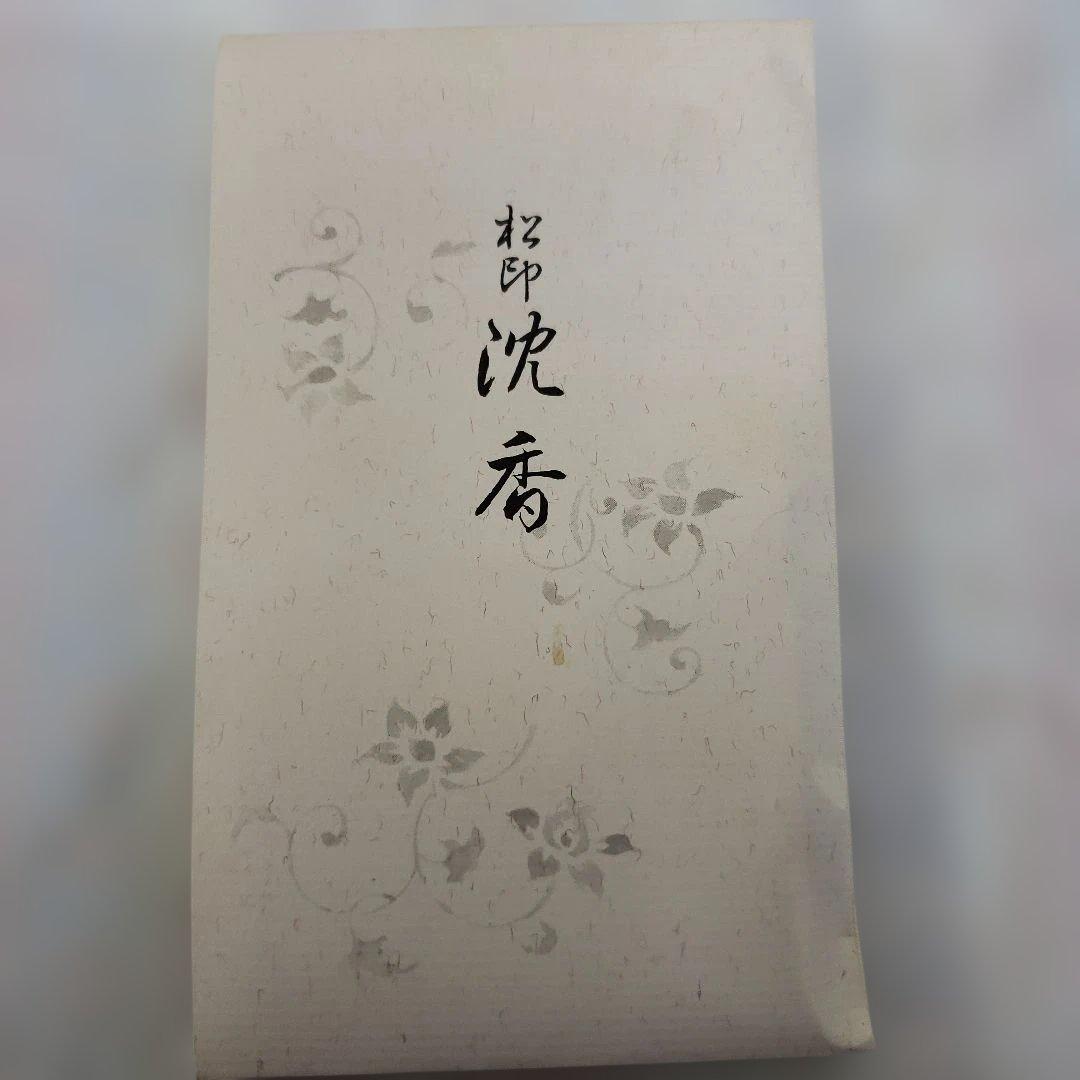 松印
沈香